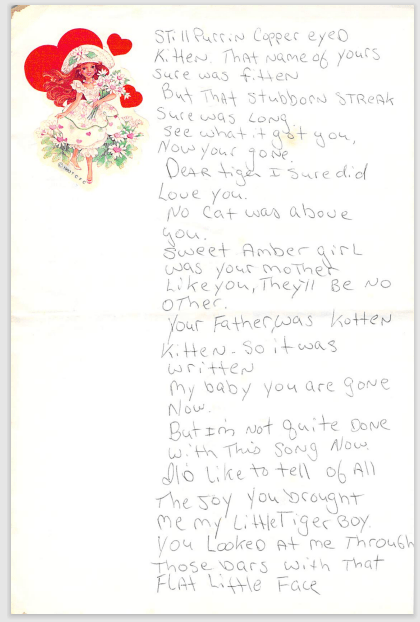 Still Purrin Copper eyed
Kitten. That name of yours
sure was fitten
But That stubborn Streak
sure was Long.
see what it got you,
Now your gone.
Dear tiger I sure did
Love you.
No Cat was above
you.
Sweet Amber girl
was your mother
Like you, They'll Be No
other.
Your Father, was Kotten
Kitten - So it was
written
my baby you are gone
Now.
But Im not quite Done
with This Song Now.
I'd Like to tell of All
The Joy you brought
me my Little Tiger Boy.
You Looked At me Through
Those bars with That
Flat Little Face